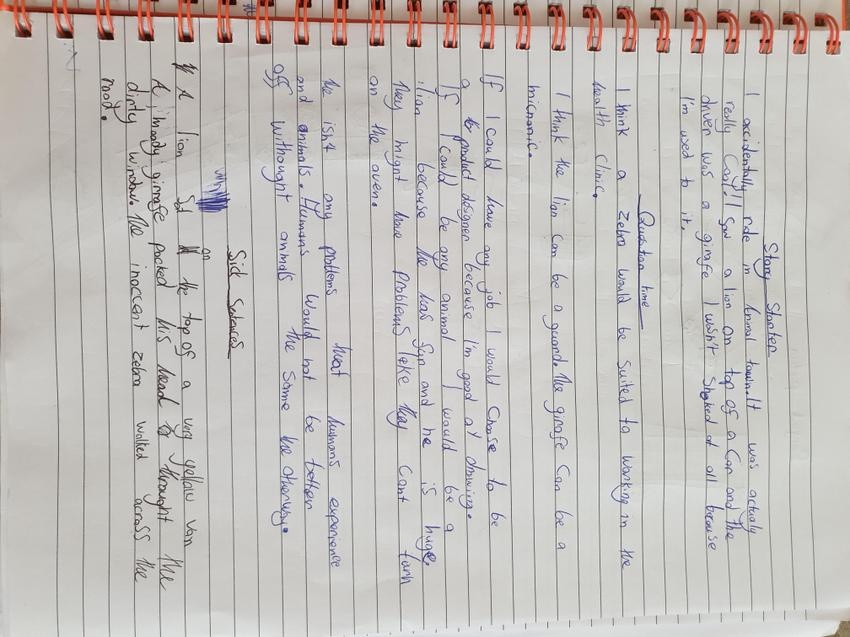 Story Starter
I accidentally ride in Animal town. It was actualy
really Cool! I saw a lion on top of a Car and the
driver was a girafe I wasn't Shoked at all because
I'm used to it.
Question time
I think a zebra would be suited to working in the
health clinic.
I think the lion can be a guard. The girafe Can be a
micronic.
If I could have any job I would Choose to be
a product designer because I'm good at drawing.
If I could be any animal I would be a
lion because he has fun and he is huge.
They might have problems like they Cant turn
on the oven.
the ish4 any problems that humans experience
and animals. Humans would not be better
off withought animals the same the otherway.
Sick Sentences
A lion sat on the top of a very yellow van
A moody girrafe packed his head throught the
dirty window. The inoccent zebra walked across the
road.